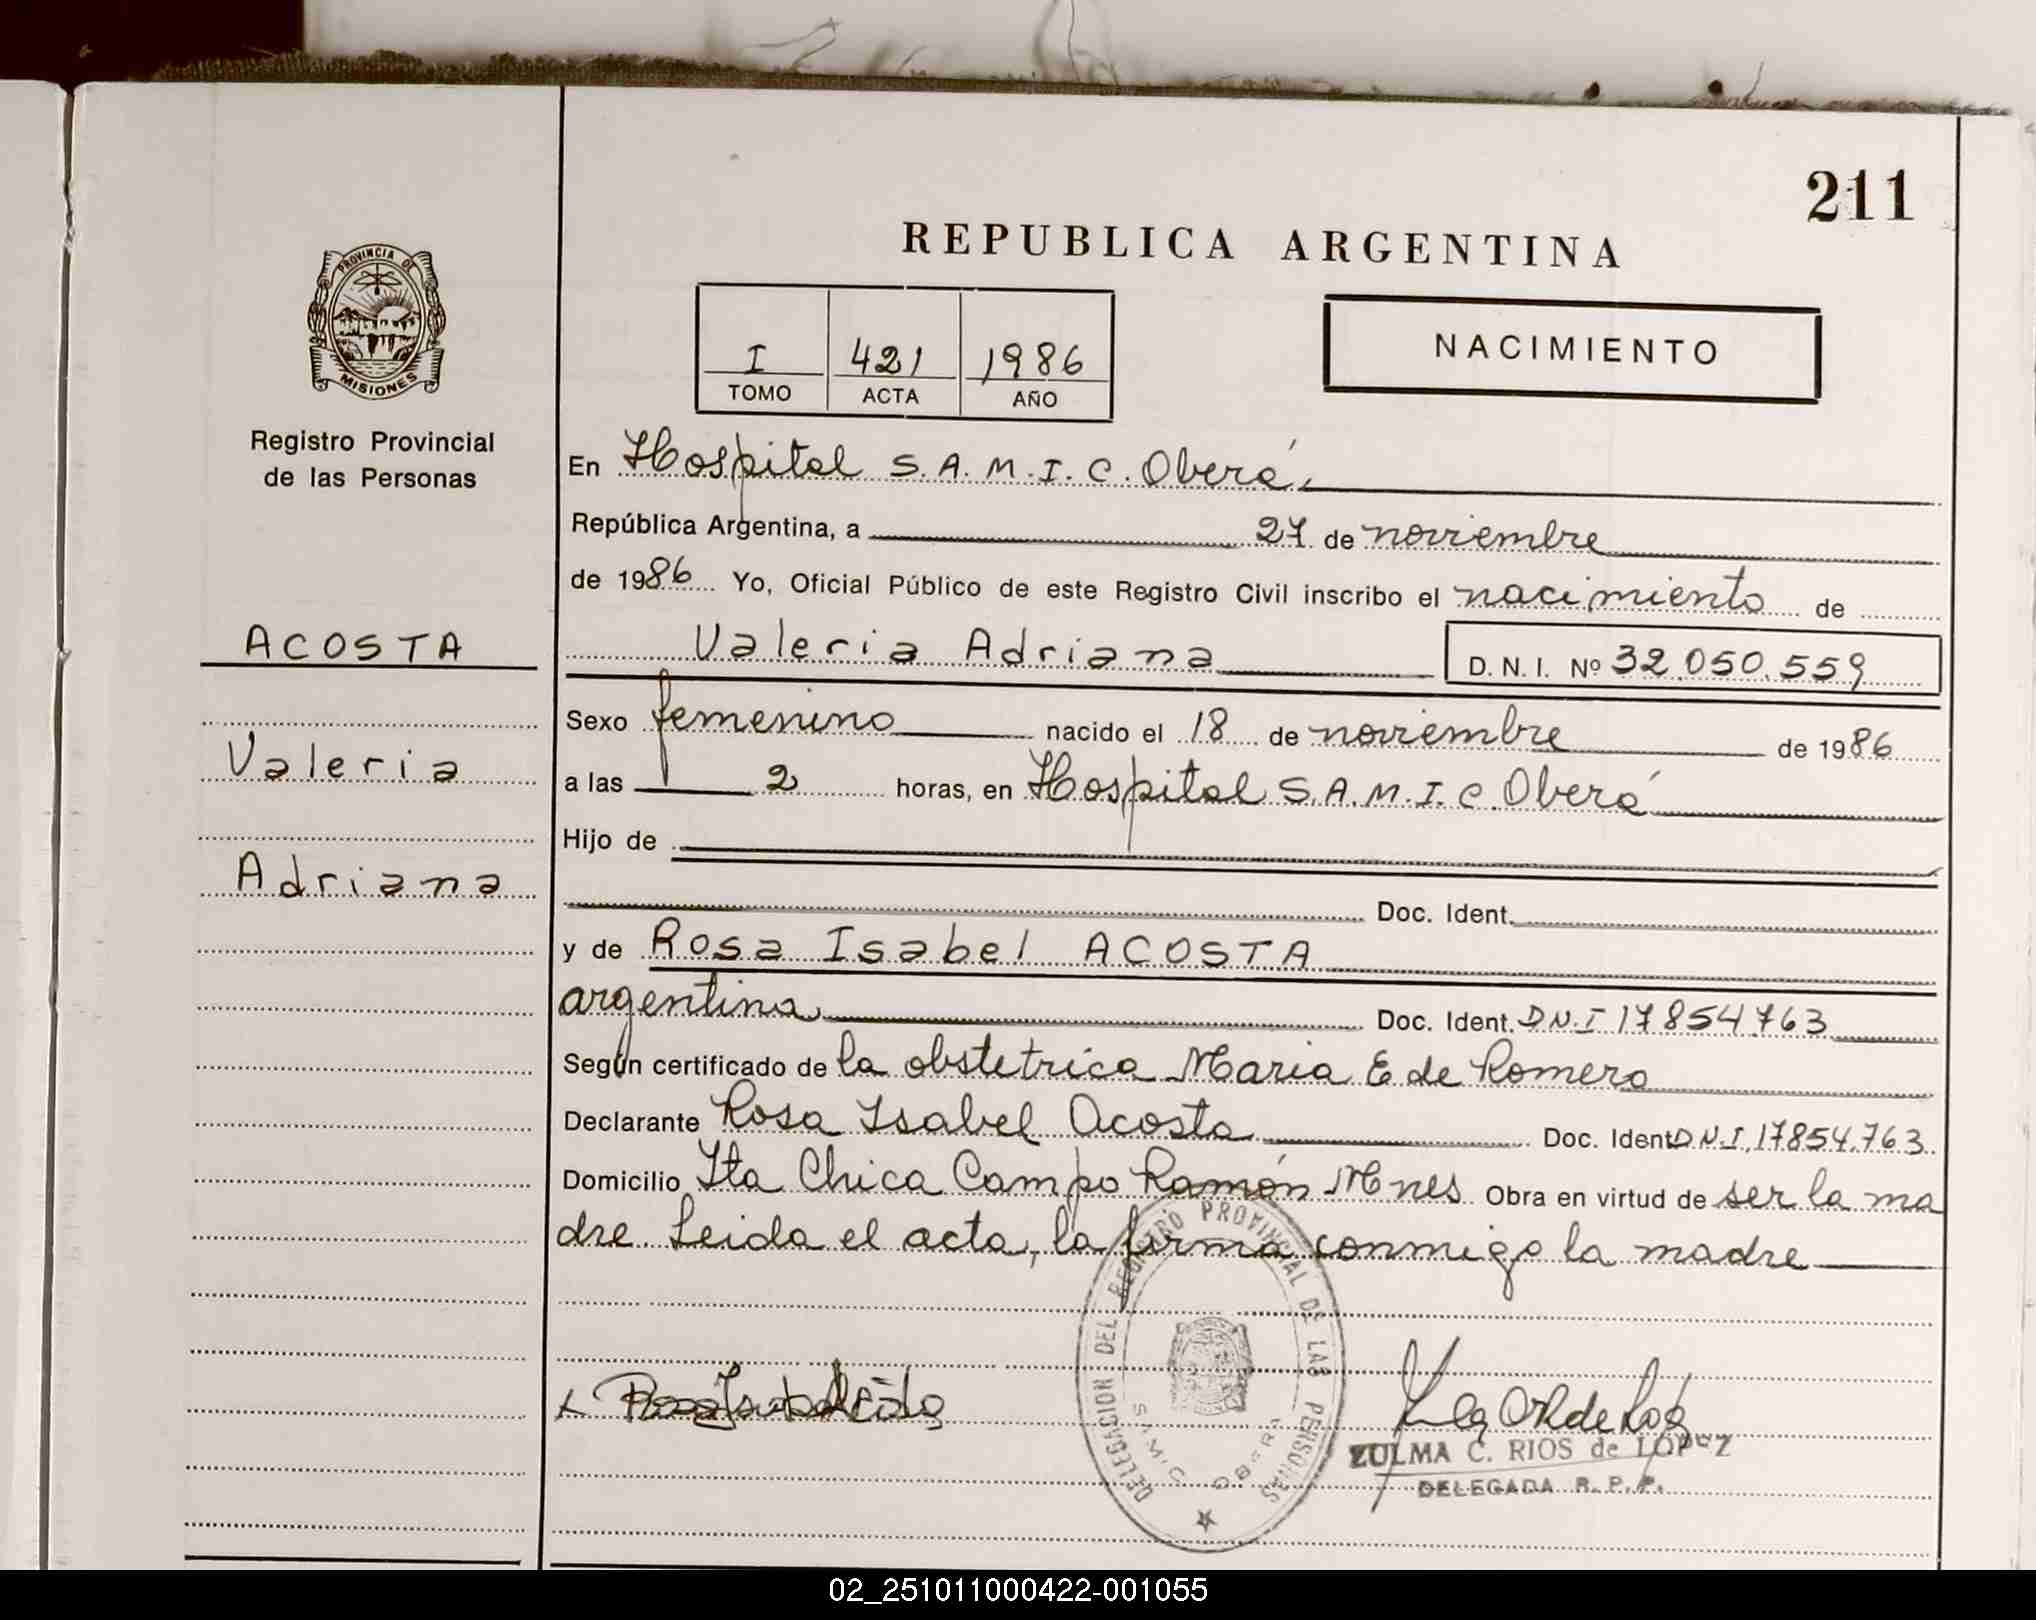 211
REPUBLICA ARGENTINA
PROVINCIA DE
MISIONES
Registro Provincial
de las Personas
I 421 1986
TOMO ACTA AÑO
NACIMIENTO
En Hospital S.A.M.I.C. Oberá,
República Argentina, a 27 de noviembre
de 1986 Yo, Oficial Público de este Registro Civil inscribo el nacimiento de
ACOSTA
Valeria Adriana D.N.I. Nº 32.050.559
Sexo femenino nacido el 18 de noviembre de 1986
Valeria
a las 2 horas, en Hospital S.A.M.I.C. Oberá
Hijo de
Adriana
Doc. Ident.
y de Rosa Isabel ACOSTA
argentina Doc. Ident. D.N.I 17854763
Según certificado de la obstetrica Maria E de Romero
Declarante Rosa Isabel Acosta Doc. Ident D.N.I. 17854.763
Domicilio Ita Chica Campo Ramón Mnes Obra en virtud de ser la ma
dre. Leida el acta, la firma conmigo la madre
DELEGACION DEL REGISTRO PROVINCIAL DE LAS PERSONAS
SAMIC OBERA
ZULMA C. RIOS de LOPEZ
DELEGADA R. P. P.
02_251011000422-001055